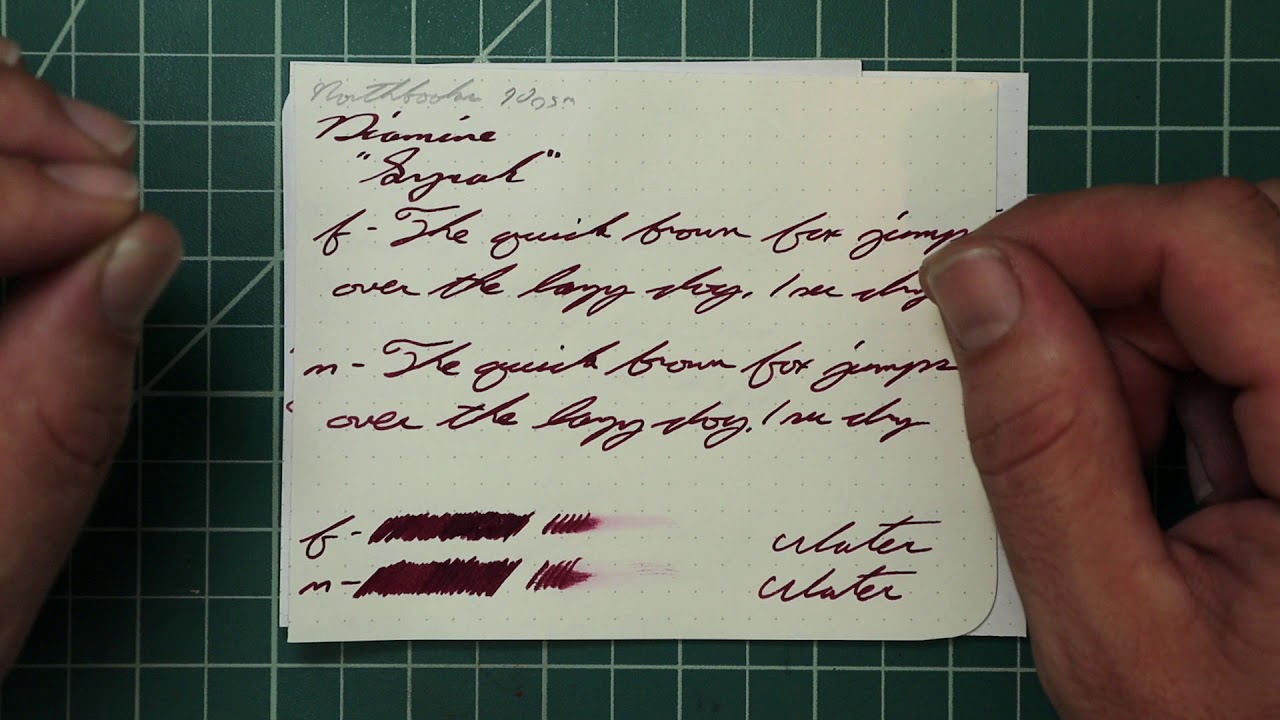 Northbooks 90gsm
Diamine
"Syrah"
f - The quick brown fox jumps
over the lazy dog. 1 sec dry
m - The quick brown fox jumps
over the lazy dog. 1 sec dry
f - Water
m - Water